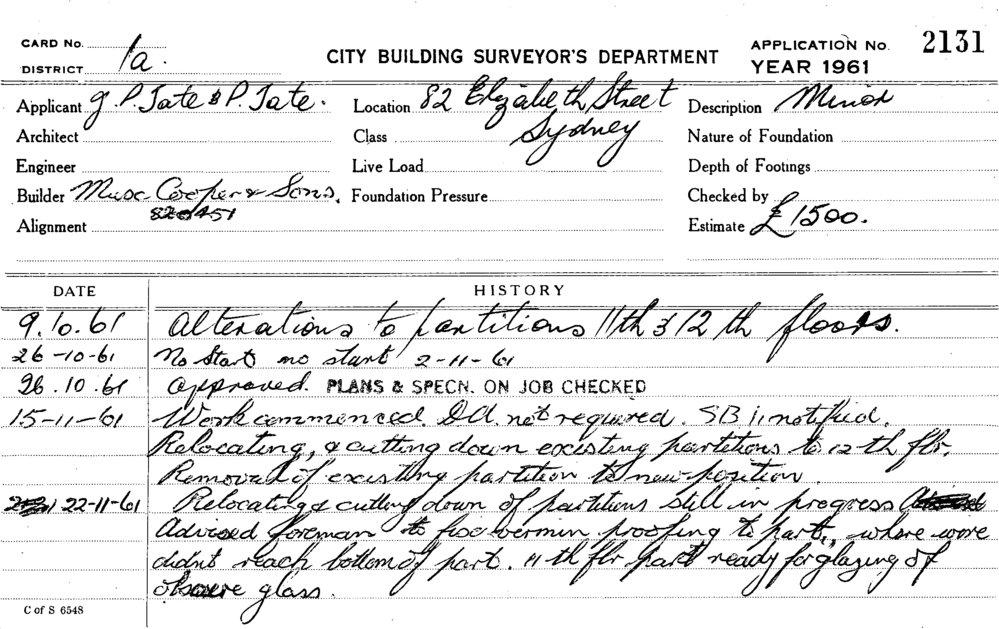 CARD No. 1a.
DISTRICT
CITY BUILDING SURVEYOR'S DEPARTMENT
APPLICATION No. 2131
YEAR 1961
Applicant J. P. Tate & P. Tate.
Location 82 Elizabeth Street
Sydney
Description Minor
Architect
Class
Nature of Foundation
Engineer
Live Load
Depth of Footings
Builder Cooper & Sons.
Foundation Pressure
Checked by
Alignment
Estimate £1500.
DATE HISTORY
9.10.61 Alterations to partitions 11th & 12th floors.
26-10-61 No Start no start 2-11-61
26.10.61 Approved. PLANS & SPECN. ON JOB CHECKED
15-11-61 Work commenced. D.A. not required. SB 1. notified.
Relocating, & cutting down existing partitions to 12th flr.
Removal of existing partition to new position.
22-11-61 Relocating & cutting down of partitions still in progress
Advised foreman to fix vermin proofing to part., where wore
didn't reach bottom of part. 11th flr part ready for glazing of
obscure glass.
C of S 6548